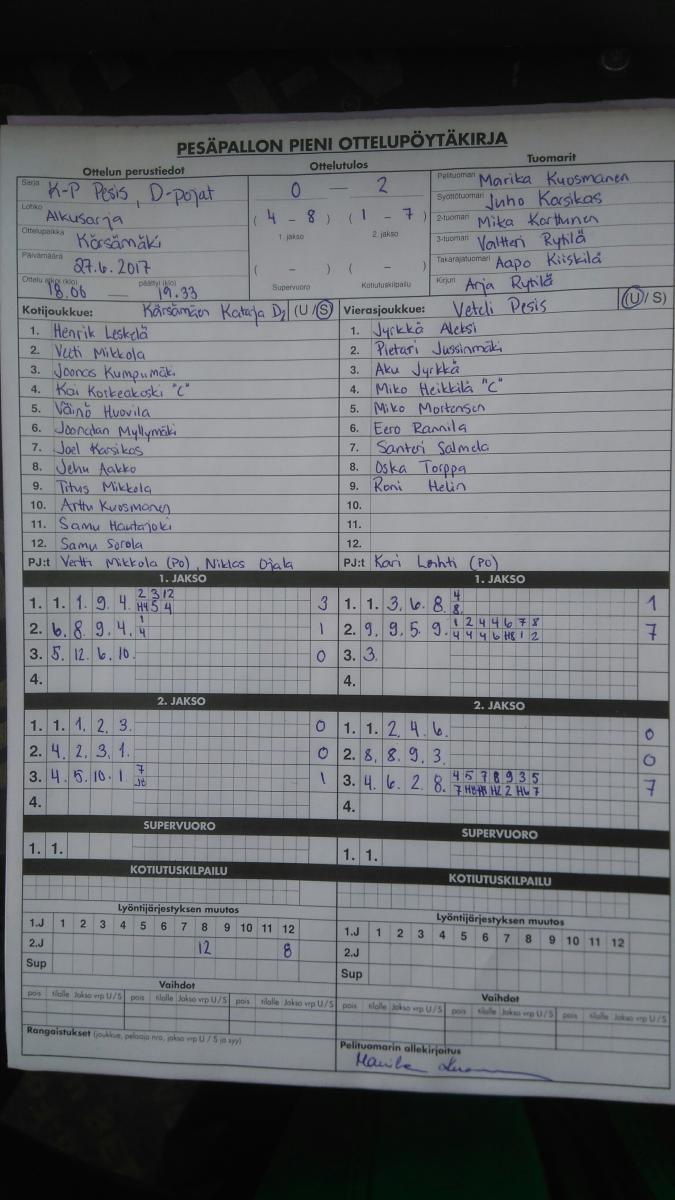 PESÄPALLON PIENI OTTELUPÖYTÄKIRJA
Ottelun perustiedot
Sarja K-P Pesis, D-pojat
Lohko Alkusarja
Ottelupaikka Kärsämäki
Päivämäärä 27.6.2017
Ottelu alkoi (klo) päättyi (klo)
18.06 — 19.33
Ottelutulos
0 — 2
( 4 – 8 ) ( 1 – 7 )
1. jakso 2. jakso
( – ) ( – )
Supervuoro Kotiutuskilpailu
Tuomarit
Pelituomari Marika Kuosmanen
Syöttötuomari Juho Karsikas
2-tuomari Mika Karhunen
3-tuomari Valtteri Rytilä
Takarajatuomari Aapo Kiiskilä
Kirjuri Arja Rytilä
Kotijoukkue: Kärsämäen Kataja D2 (U/S)
1. Henrik Leskelä
2. Veeti Mikkola
3. Joonas Kumpumäki
4. Kai Korkeakoski "C"
5. Väinö Huovila
6. Joonatan Myllymäki
7. Joel Karsikas
8. Jehu Aakko
9. Titus Mikkola
10. Arttu Kuosmanen
11. Samu Hautajoki
12. Samu Sorola
PJ:t Vertti Mikkola (PO), Niklas Ojala
Vierasjoukkue: Veteli Pesis (U/S)
1. Jyrkkä Aleksi
2. Pietari Jussinmäki
3. Aku Jyrkkä
4. Miko Heikkilä "C"
5. Miko Mortensen
6. Eero Rannila
7. Santeri Salmela
8. Oska Torppa
9. Roni Helin
10.
11.
12.
PJ:t Kari Lahti (PO)
1. JAKSO
1. 1. 1. 9. 4. 2 3 12 3
H4 5 4
2. 6. 8. 9. 4. 1 1
4
3. 5. 12. 6. 10. 0
4.
1. JAKSO
1. 1. 3. 6. 8. 4 1
8.
2. 9. 9. 5. 9. 1 2 4 4 6 7 8 7
4 4 4 6 H8 1 2
3. 3.
4.
2. JAKSO
1. 1. 1. 2. 3. 0
2. 4. 2. 3. 1. 0
3. 4. 5. 10. 1. 7 1
4.
2. JAKSO
1. 1. 2. 4. 6. 0
2. 8. 8. 9. 3. 0
3. 4. 6. 2. 8. 4 5 7 8 9 3 5 7
4.
SUPERVUORO
1. 1.
SUPERVUORO
1. 1.
KOTIUTUSKILPAILU
KOTIUTUSKILPAILU
Lyöntijärjestyksen muutos
1.J 1 2 3 4 5 6 7 8 9 10 11 12
2.J 12 8
Sup
Lyöntijärjestyksen muutos
1.J 1 2 3 4 5 6 7 8 9 10 11 12
2.J
Sup
Vaihdot
pois tilalle Jakso vrp U/S pois tilalle Jakso vrp U/S pois tilalle Jakso vrp U/S
Vaihdot
pois tilalle Jakso vrp U/S pois tilalle Jakso vrp U/S pois tilalle Jakso vrp U/S
Rangaistukset (joukkue, pelaaja nro, jakso vrp U/S ja syy)
Pelituomarin allekirjoitus